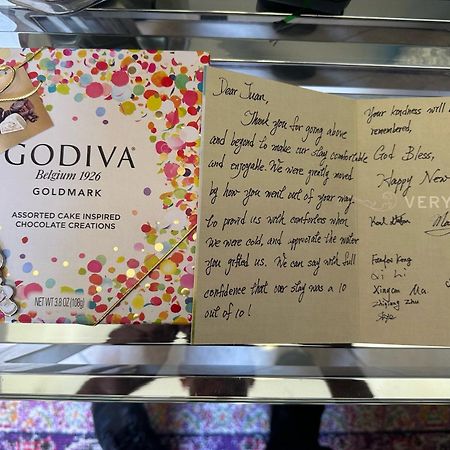 GODIVA
Belgium 1926
GOLDMARK
ASSORTED CAKE INSPIRED
CHOCOLATE CREATIONS
NET WT 3.8 OZ (108g)
Dear Juan,
Thank you for going above
and beyond to make our stay comfortable
and enjoyable. We were greatly moved
by how you went out of your way
to provid us with comforters when
we were cold, and appreciate the water
you gifted us. We can say with full
confidence that our stay was a 10
out of 10!
Your kindness will
remembered,
God Bless,
Happy New
VERY
Qi Li
Xingan Ma
Zhiqiang Zhu